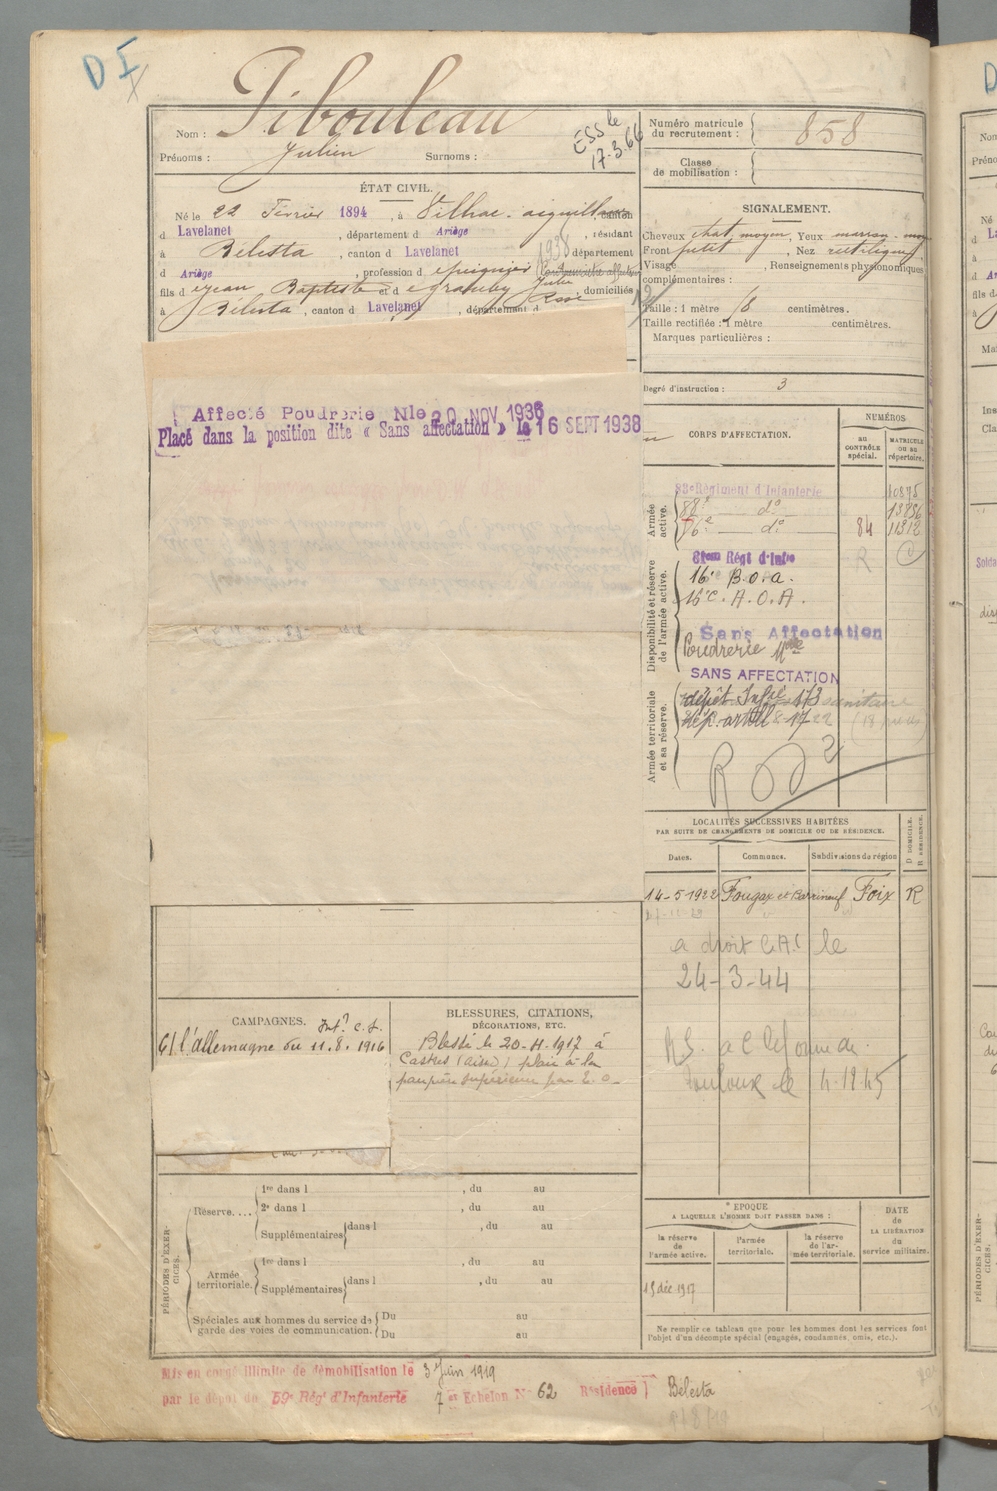 D I
Nom : Pibouleau
Prénoms : Julien Surnoms :
ESS le
17.3.66
Numéro matricule
du recrutement : 858
Classe
de mobilisation :
ÉTAT CIVIL.
Né le 22 Février 1894, à Vilhac-aiguillanes canton
d Lavelanet, département d Ariège, résidant
à Bélesta, canton d Lavelanet 1938 département
d Ariège, profession d
fils d Jean Baptiste et d Julie
Rose, domiciliés
à Bélesta, canton d Lavelanet, département d
SIGNALEMENT.
Cheveux chat. moyen, Yeux marron
Front petit, Nez rectiligne
Visage , Renseignements physionomiques
complémentaires :
Taille : 1 mètre 6 centimètres.
Taille rectifiée : 1 mètre centimètres.
Marques particulières :
Degré d'instruction : 3
Affecté Poudrerie Nle 20 NOV 1936
Placé dans la position dite « Sans affectation » le 16 SEPT 1938
CORPS D'AFFECTATION.
NUMÉROS
au
CONTRÔLE
spécial.
MATRICULE
OU AU
répertoire.
Armée
active.
83e Régiment d'Infanterie 10875
88e do 13786
96e do 84 11312
Disponibilité et réserve
de l'armée active.
81eme Régt d'Infie R C
16e B.O.A.
16e C.A.O.A.
Sans Affectation
Poudrerie Nale
SANS AFFECTATION
Armée territoriale
et sa réserve.
dépôt Infie 173 sanitaire
dép. artill 8-17 22
LOCALITÉS SUCCESSIVES HABITÉES
PAR SUITE DE CHANGEMENTS DE DOMICILE OU DE RÉSIDENCE.
Dates. Communes. Subdivisions de région
D DOMICILE.
R RÉSIDENCE.
14-5-1922 Fougax et Barrineuf Foix R
a droit C.A.C le
24-3-44
CAMPAGNES.
C/ l'allemagne du 11.8.1916
BLESSURES, CITATIONS,
DÉCORATIONS, ETC.
Blessé le 20-11-1917 à
Castres (aisne) plaie à la
paupière supérieure par E.O.
PÉRIODES D'EXERCICES.
Réserve....
1re dans l , du au
2e dans l , du au
Supplémentaires dans l , du au
Armée
territoriale.
1re dans l , du au
Supplémentaires dans l , du au
Spéciales aux hommes du service de
garde des voies de communication.
Du au
Du au
ÉPOQUE
A LAQUELLE L'HOMME DOIT PASSER DANS :
la réserve
de
l'armée active.
l'armée
territoriale.
la réserve
de l'ar-
mée territoriale.
DATE
de
LA LIBÉRATION
du
service militaire.
15 déc 1917
Ne remplir ce tableau que pour les hommes dont les services font
l'objet d'un décompte spécial (engagés, condamnés, omis, etc.).
Mis en congé illimité de démobilisation le 3 Juin 1919
par le dépôt du 59e Régt d'Infanterie 7e Echelon No 62 Résidence Bélesta